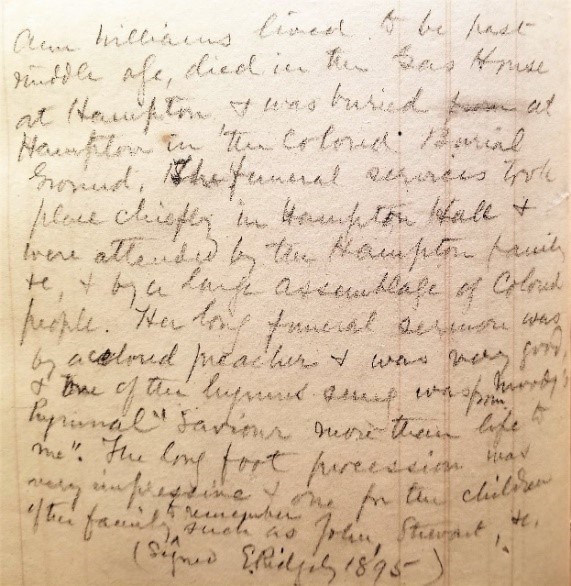 Ann Williams lived to be past
middle age, died in the Gas House
at Hampton & was buried at
Hampton in the Colored Burial
Ground. The funeral services took
place chiefly in Hampton Hall &
were attended by the Hampton family
&c, & by a large assemblage of Colored
people. Her long funeral sermon was
by a colored preacher & was very good,
& one of the hymns sung was from Moody's
hymnal "Saviour more than life to
me". The long foot procession was
very impressive & one for the children
of the family to remember such as John, Stewart, &c.
(Signed E. Ridgely 1895)